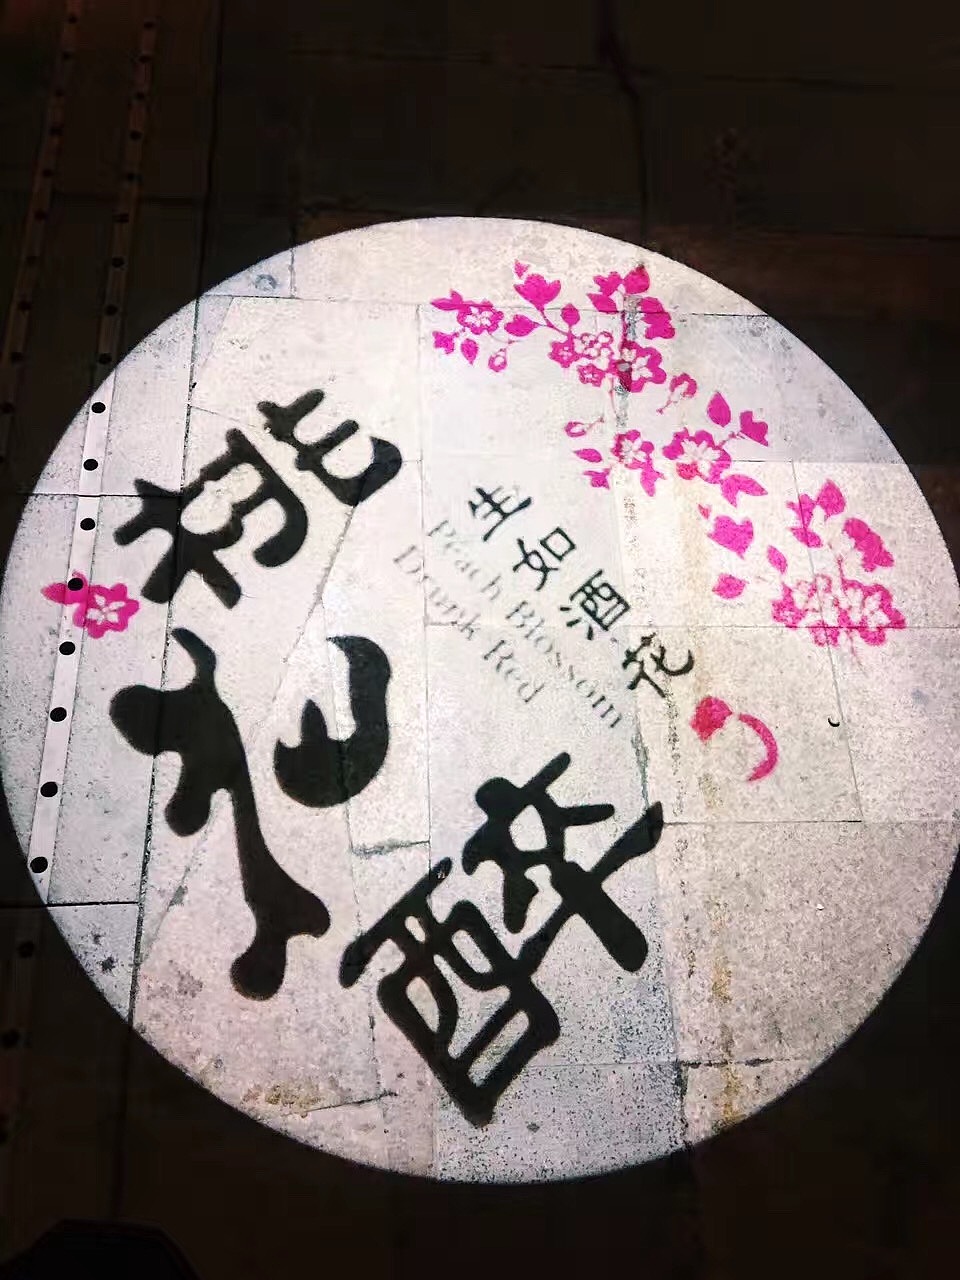 桃花醉
生如酒花
Peach Blossom
Drunk Red